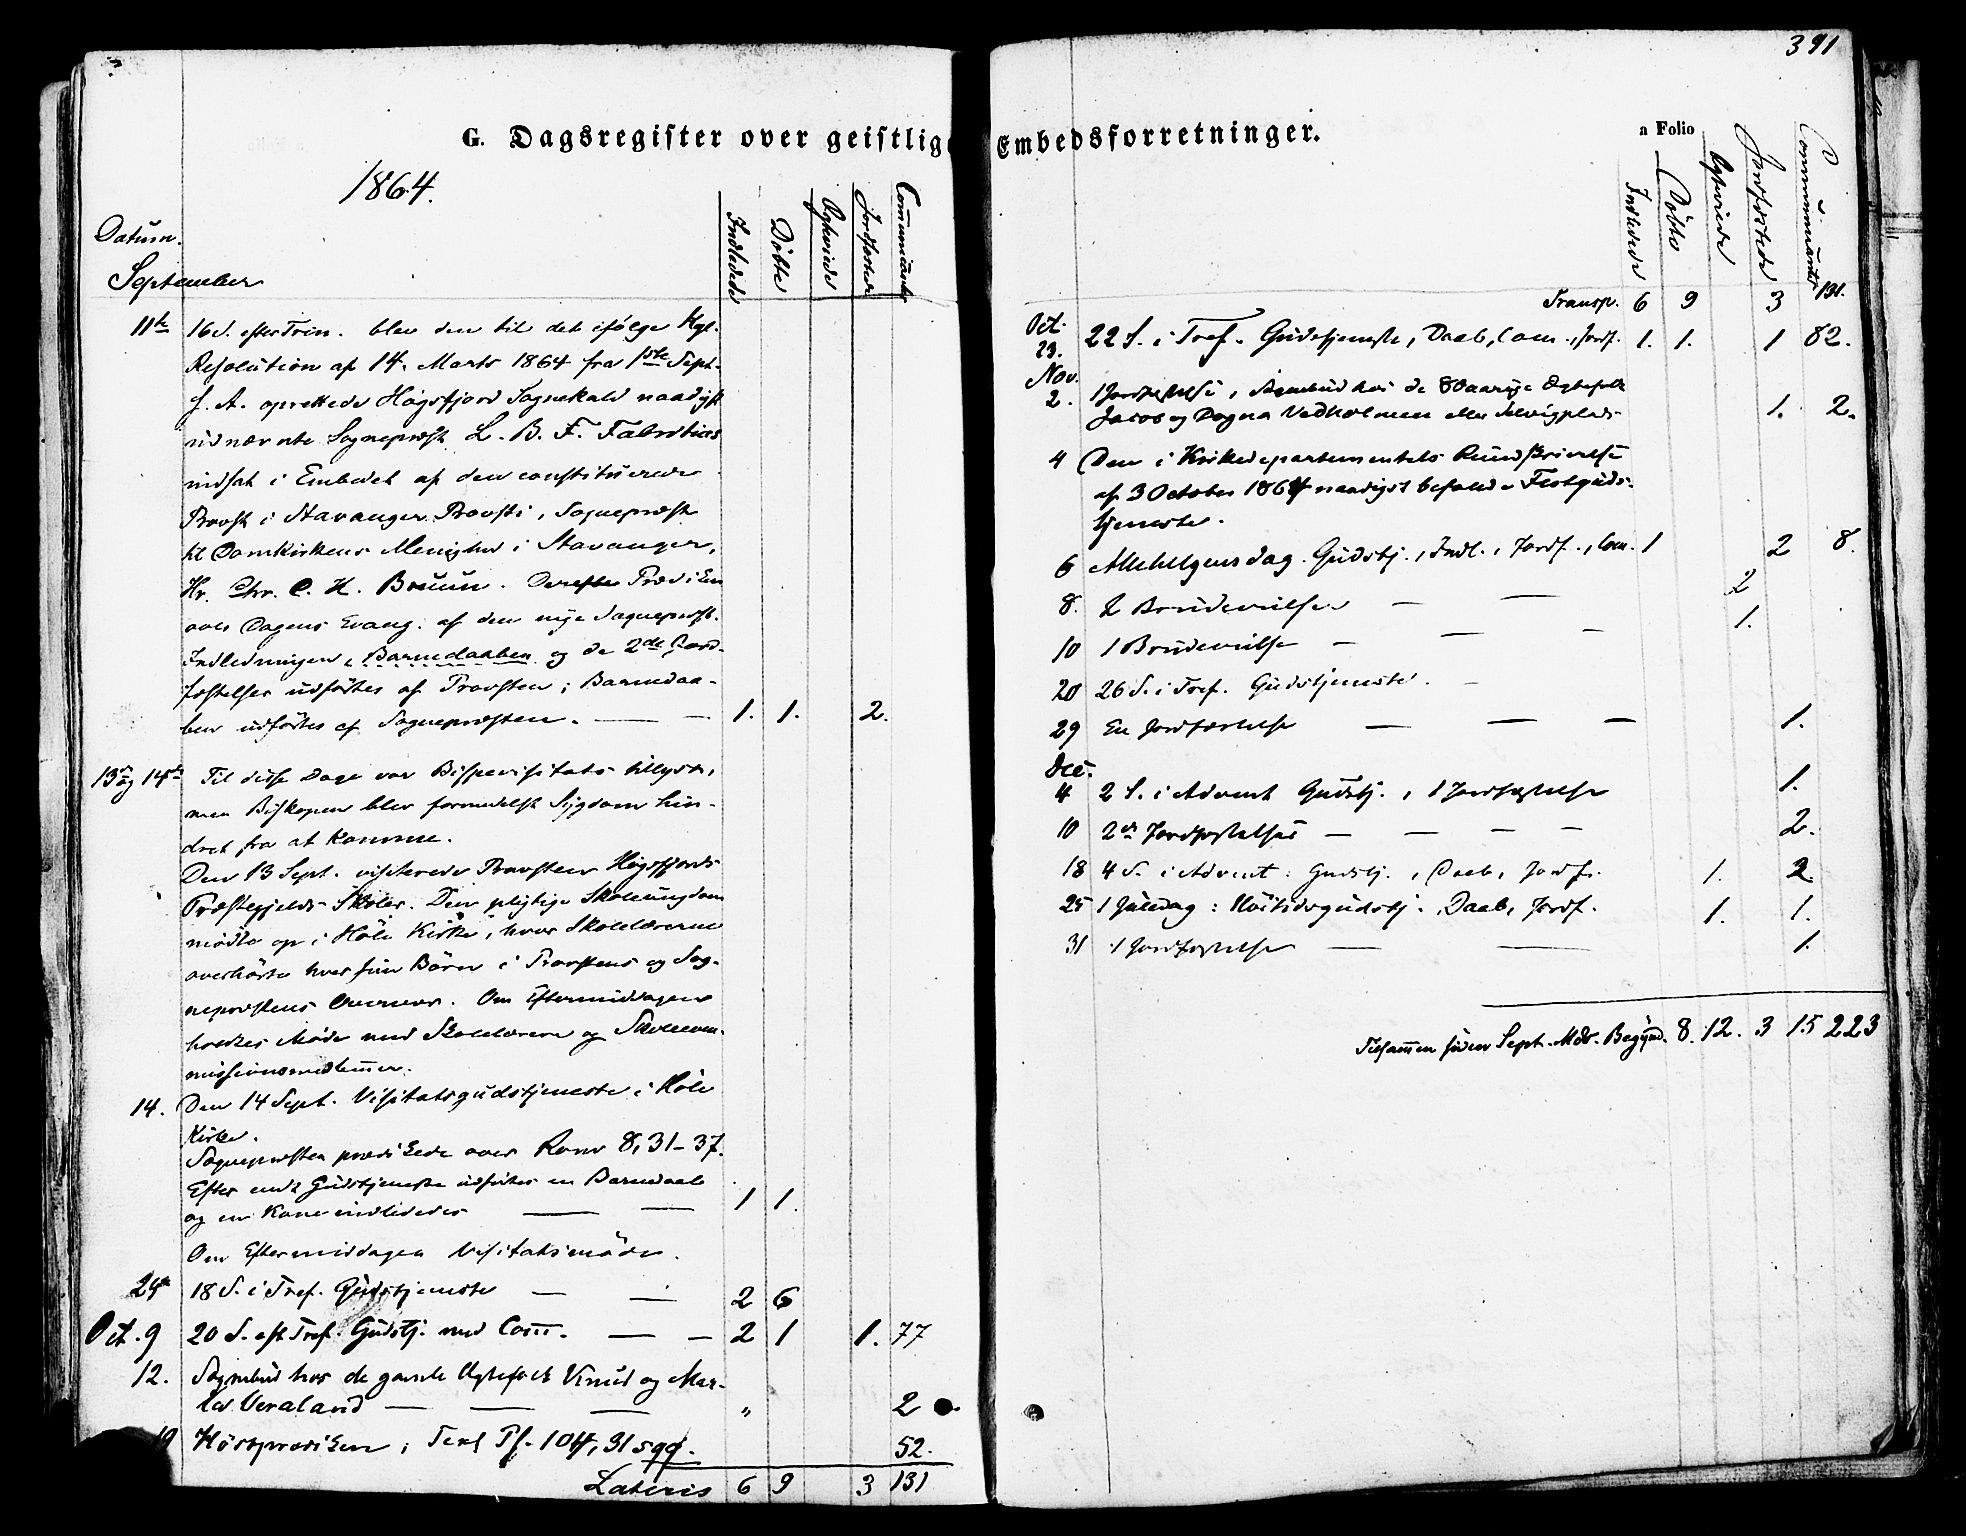 391
G. Dagsregister over geistlige Embedsforretninger.
a Folio
1864.
Datum.
Indledede
Döbte
Ægteviede
Jordfæstede
Communicanter
September
11te 16 S. efter Trin. blev den til det ifölge Kgl.
Resolution af 14. Marts 1864 fra 1ste Sept.
f. A. oprettede Högsfjord Sognekald naadigst
udnævnte Sognepræst L. B. F. Fabritius
indsat i Embedet af den constituerede
Provst i Stavanger Provsti, Sognepræst
til Domkirkens Menighed i Stavanger,
Hr. Chr. C. H. Bruun. Derefter Prædiken
over Dagens Evang. af den nye Sognepræst.
Indledningen, Barnedaaben og de 2de Jord-
fæstelser udförtes af Provsten; Barnedaa-
ben udförtes af Sognepræsten. — — 1. 1. 2.
13de og 14de Til disse Dage var Bispevisitats tillyst,
men Biskopen blev formedelst Sygdom hin-
dret fra at komme.
Den 13 Sept. visiterede Provsten Högsfjords
Præstegjelds Skoler. Den pligtige Skoleungdom
mödte op i Höle Kirke, hvor Skolelærerne
overhörte hver sine Börn i Provstens og Sog-
nepræstens Overvær. Om Eftermiddagen
holdtes Möde med Skolelærere og Skolecom-
missionsmedlemmer.
14. Den 14 Sept. Visitatsgudstjeneste i Höle
Kirke.
Sognepræsten prædikede over Rom 8, 31-37.
Efter endt Gudstjeneste udförtes en Barnedaab
og en Kone indlededes — — 1 1.
Om Eftermiddagen Visitatsmöde.
25te 18 S. i Tref. Gudstjeneste — — 2 6
Oct. 9 20 S. eft Tref. Gudstj. med Com. — — 2 1 1. 77
12. Sognebud hos de gamle Ægtefolk Knud og Mar-
ta Veraland — — — " 2
19 Höstprædiken; Text Ps. 104, 31 sqq. 52.
Lateris 6 9 3 131
Indledede
Döbte
Ægteviede
Jordfæstede
Communicanter
Transp. 6 9 3 131.
Oct.
23. 22 S. i Tref. Gudstjeneste, Daab, Com., Jordf. 1. 1. 1 82.
Nov.
2. 1 Jordfæstelse, Sognebud hos de 80aarige Ægtefolk
Jacob og Dogna Vedholmen eller Selvigplads 1. 2.
4 Den i Kirkedepartementets Rundskrivelse
af 3 October 1864 naadigst befalede Festguds-
tjeneste.
6 Allehelgensdag. Gudstj., Indl., Jordf., Com. 1 2 8.
8. 2 Brudevielser — — 2
10 1 Brudevielse — — — 1.
20 26 S. i Tref. Gudstjeneste. —
29 En Jordfæstelse — — — 1.
Dec.
4 2 S. i Advent Gudstj., 1 Jordfæstelse 1.
10 2de Jordfæstelser — — — — 2.
18 4 S. i Advent: Gudstj., Daab, Jordf. 1. 2.
25 1 Juledag: Höitidsgudstj., Daab, Jordf. 1. 1.
31 1 Jordfæstelse — — 1.
Tilsammen siden Sept. Mds. Begynd. 8. 12. 3 15 223